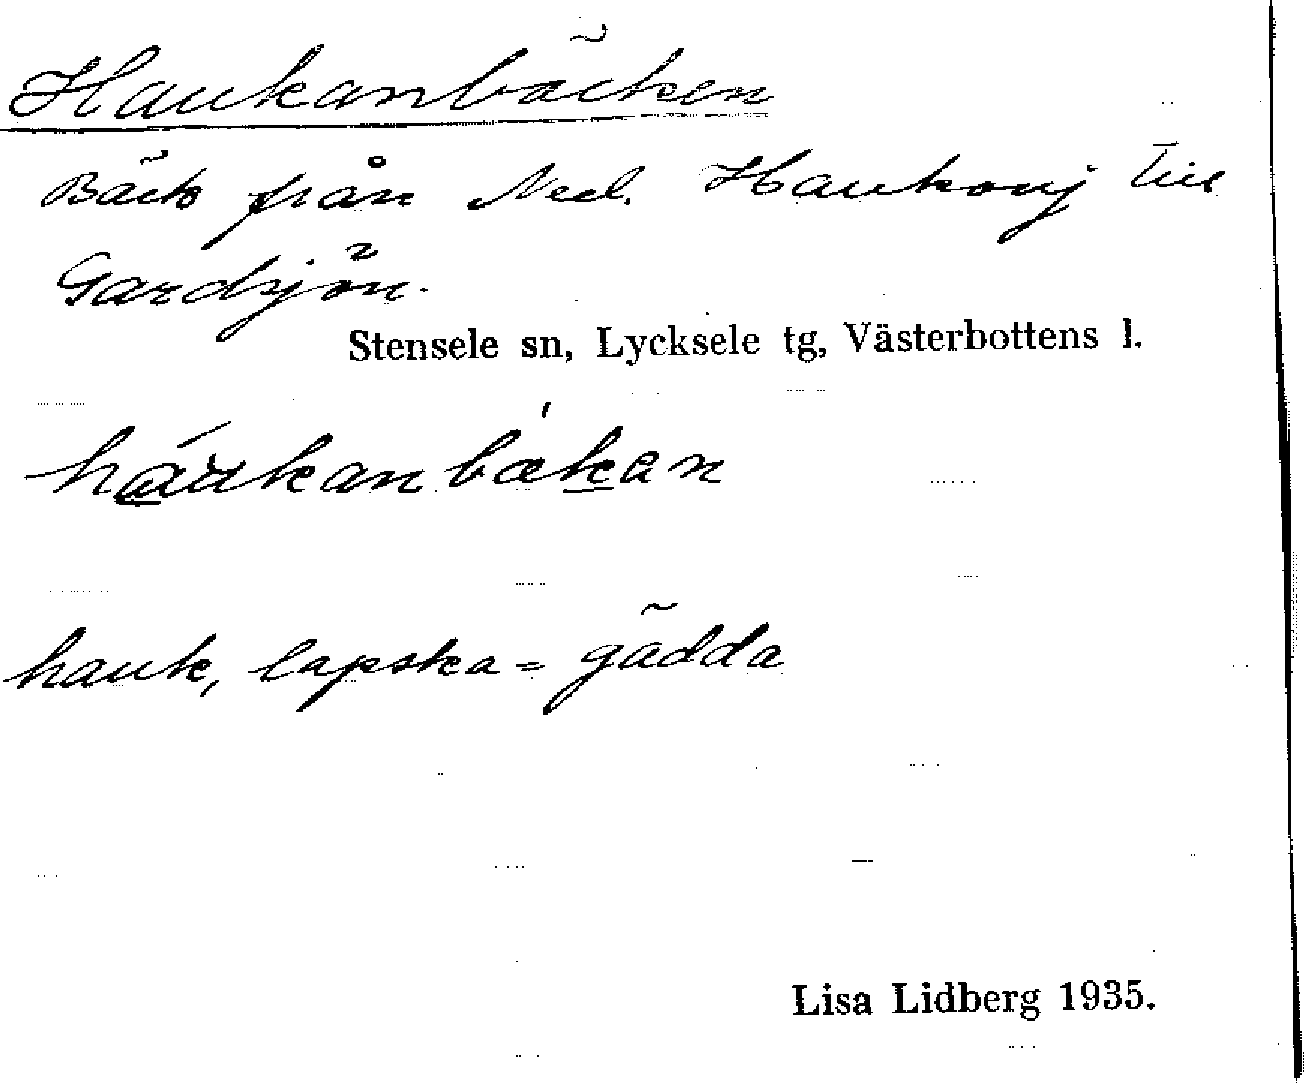 Haukanbäcken
Bäck från Ned. Haukovj till
Gardsjön.
Stensele sn, Lycksele tg, Västerbottens l.
háukanbækan
hauk, lapska = gädda
Lisa Lidberg 1935.